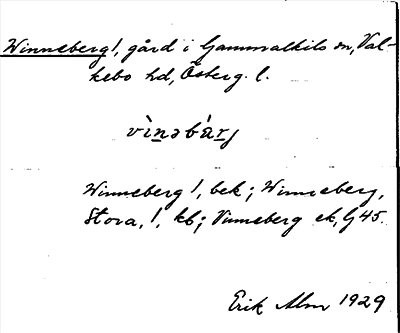 Winneberg!, gård i Gammalkils sn, Val-
kebo hd, Österg. l.
vìnəbár̠j
Winneberg!, bek; Winneberg,
Stora, !, kb; Vinneberg ek, G 45.
Erik Alm 1929